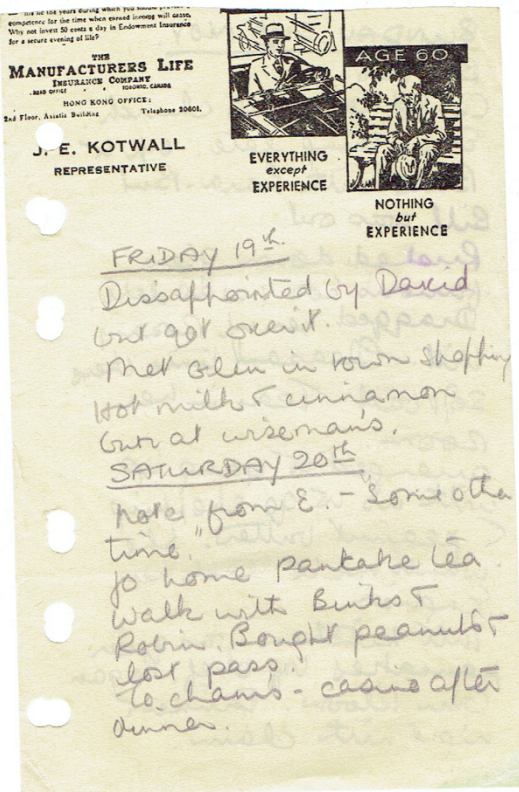 his lie the years during which you should provide a
competence for the time when earned income will cease.
Why not invest 50 cents a day in Endowment Insurance
for a secure evening of life?
THE
MANUFACTURERS LIFE
INSURANCE COMPANY
HEAD OFFICE TORONTO, CANADA
HONG KONG OFFICE:
2nd Floor, Asiatic Building Telephone 20601.
J. E. KOTWALL
REPRESENTATIVE
EVERYTHING
except
EXPERIENCE
AGE 60
NOTHING
but
EXPERIENCE
FRIDAY 19th.
Dissappointed by David
but got over it.
Met Glen in town shopping
Hot milk & cinnamon
at wiseman's.
SATURDAY 20th
Note from E. - Some other
time."
Jo home pancake tea
Walk with Binks &
Robin. Bought peanuts &
lost pass!
To chams - casino after
dinner.